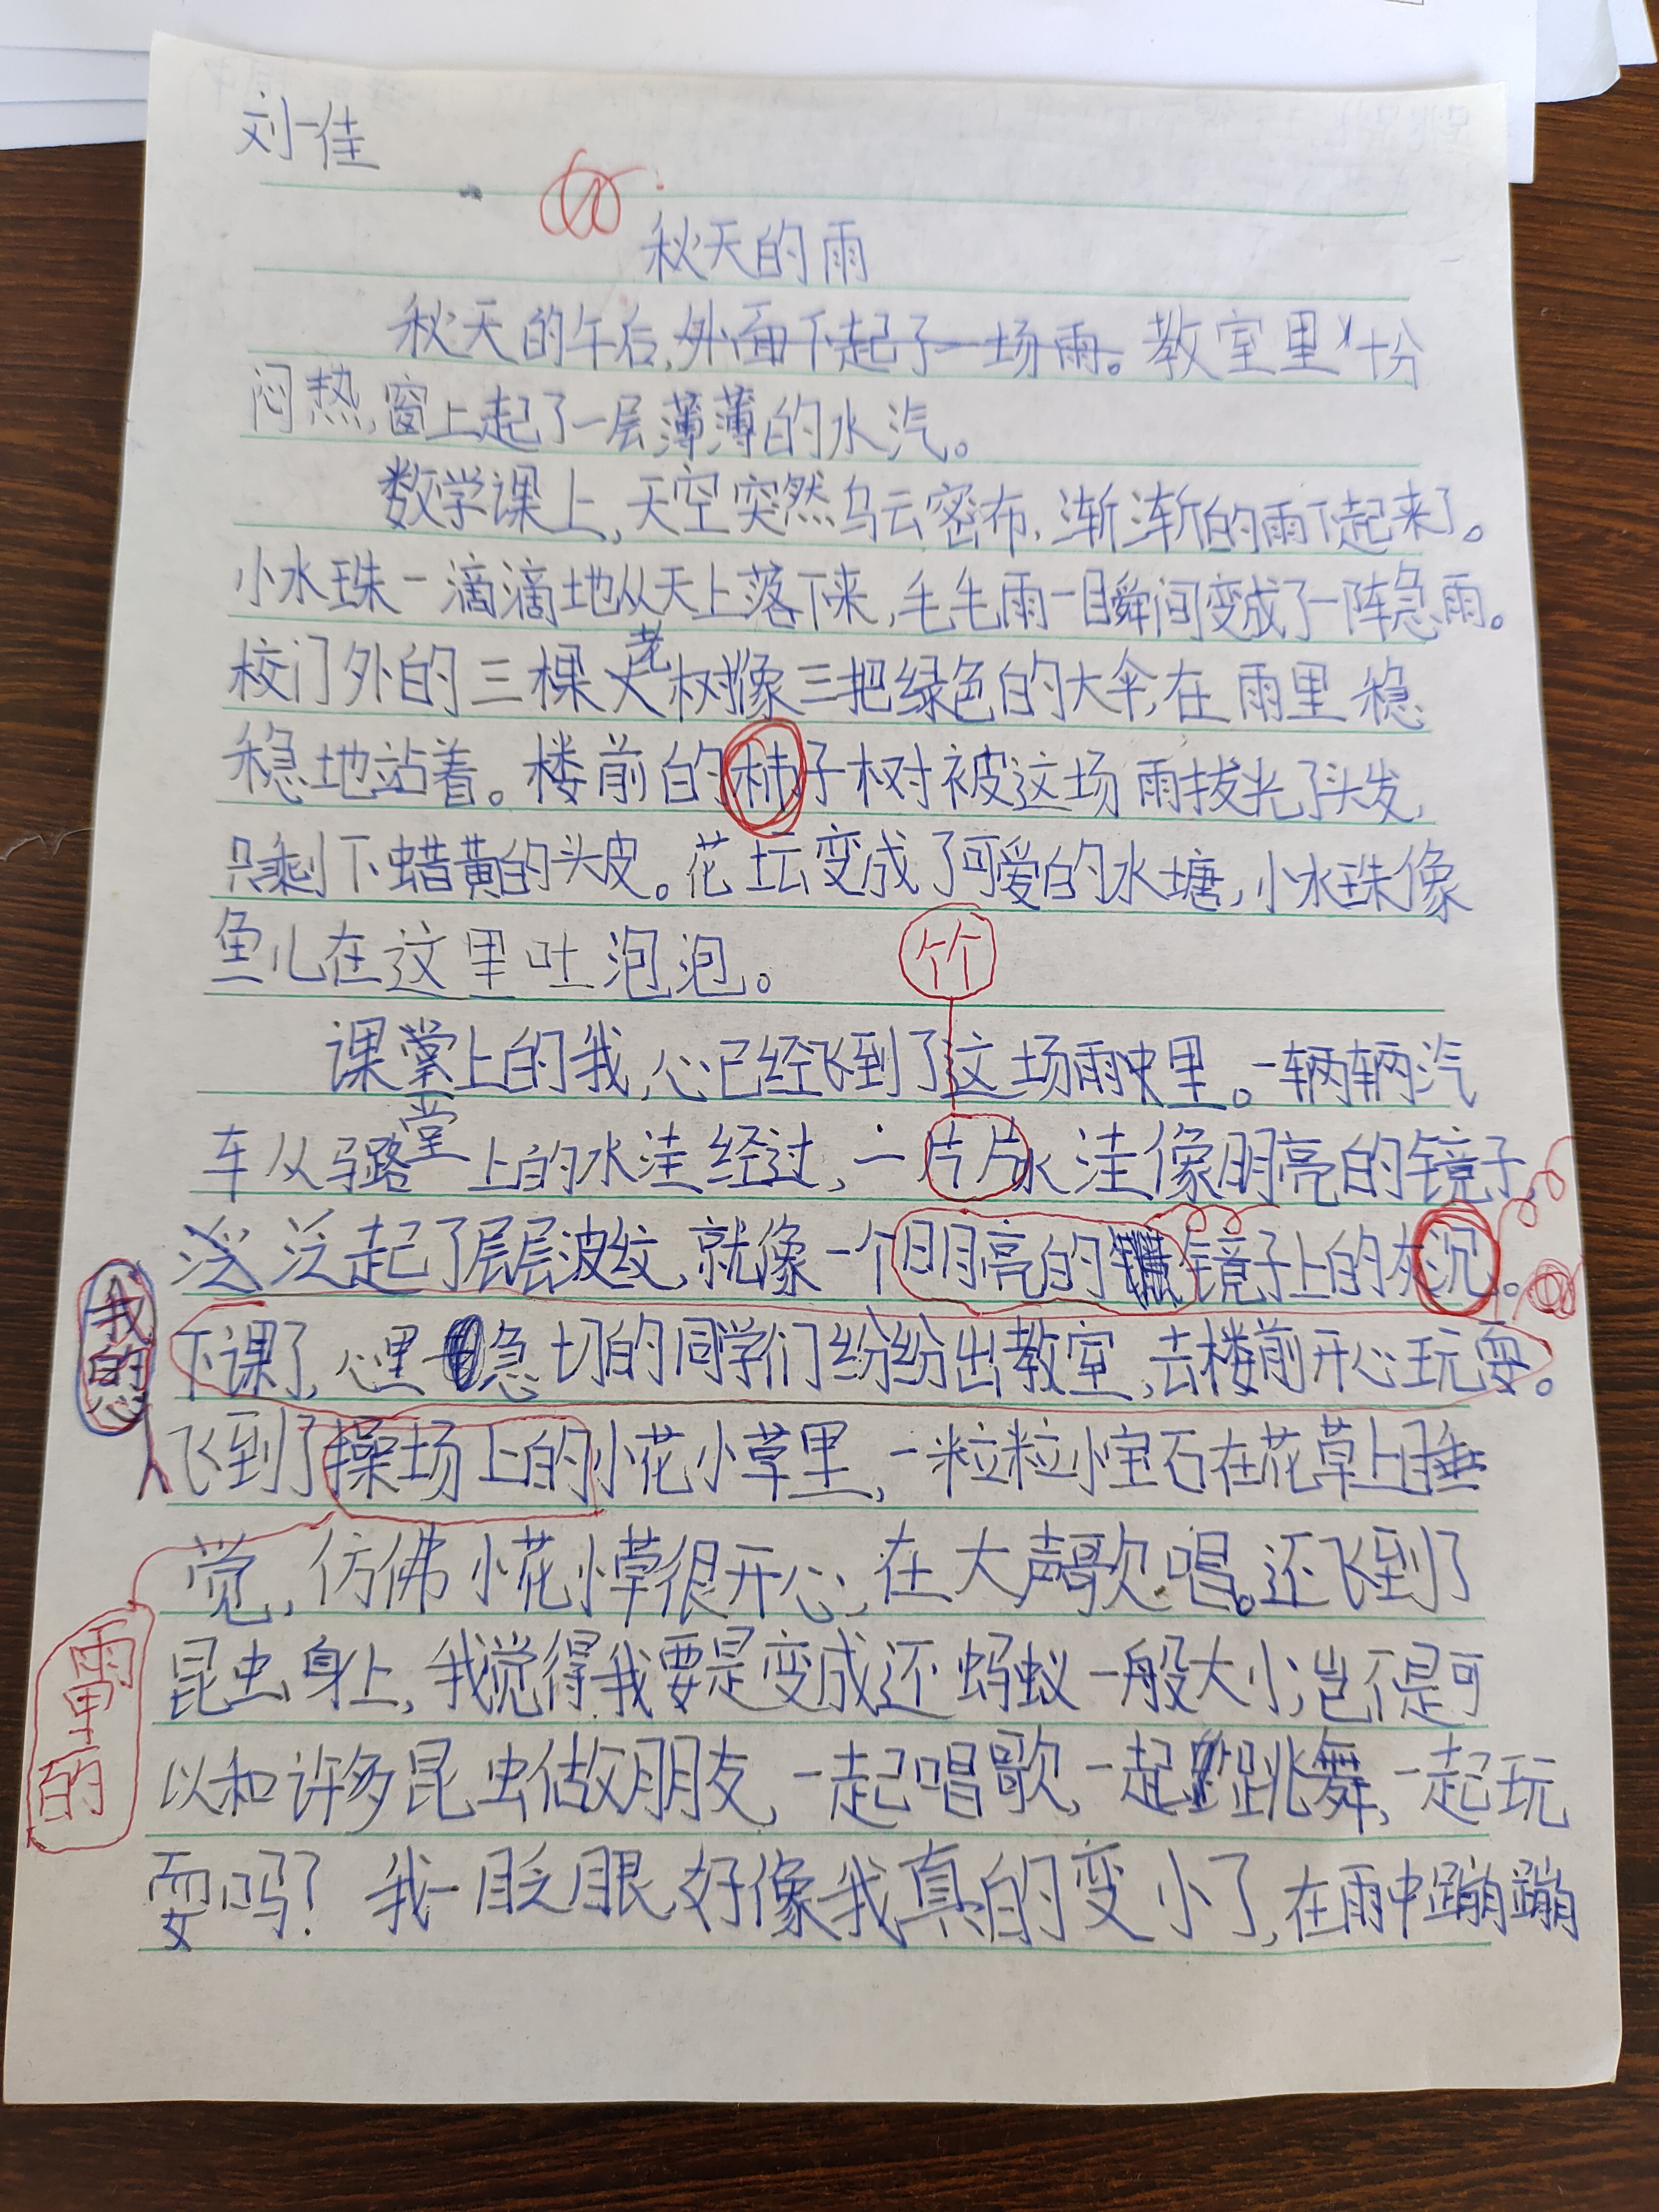 刘一佳
秋天的雨
秋天的午后,外面下起了一场雨。教室里十分
闷热,窗上起了一层薄薄的水汽。
数学课上,天空突然乌云密布,渐渐的雨下起来了。
小水珠一滴滴地从天上落下来,毛毛雨一瞬间变成了一阵急雨。
校门外的三棵老树像三把绿色的大伞,在雨里稳
稳地站着。楼前的柿子树被这场雨拔光了头发,
只剩下蜡黄的头皮。花坛变成了可爱的水塘,小水珠像
鱼儿在这里吐泡泡。
个个
课堂上的我,心已经飞到了这场雨中里。一辆辆汽
堂
车从马路上的水洼经过,一片片水洼像明亮的镜子,
泛起了层层波纹,就像一个明亮的镜子上的灰沉。
我的心
下课了,心里急切的同学们纷纷出教室,去楼前开心玩耍。
飞到了操场上的小花小草里,一粒粒小宝石在花草上睡
觉,仿佛小花小草很开心,在大声歌唱。还飞到了
雨里的
昆虫身上,我觉得我要是变成还蚂蚁一般大小,岂不是可
以和许多昆虫做朋友,一起唱歌,一起跳舞,一起玩
耍吗?我一眨眼,好像我真的变小了,在雨中蹦蹦